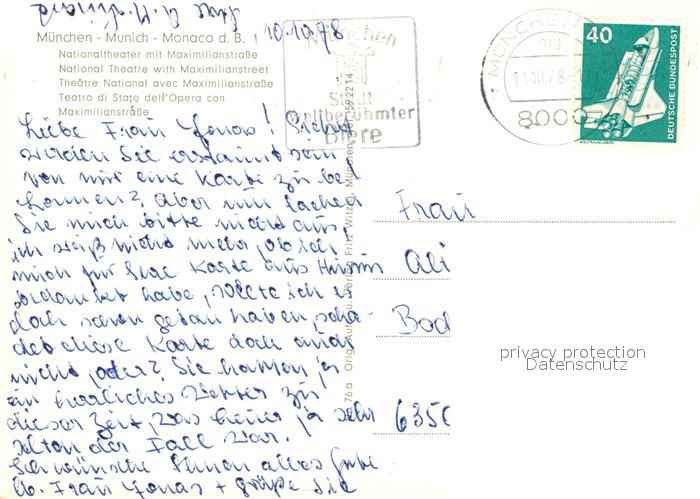 München - Munich - Monaco d. B.
Nationaltheater mit Maximilianstraße
National Theatre with Maximilianstreet
Théâtre National avec Maximilianstraße
Teatro di Stato dell'Opera con
Maximilianstraße
10.10.78
Liebe Frau Jonas! Sicher
werden Sie erstaunt sein
von mir eine Karte zu be-
kommen? Aber nun lachen
Sie mich bitte nicht aus
ich weiß nicht mehr, ob ich
mich für Ihre Karte aus
bedankt habe, sollte ich es
doch schon getan haben, scha-
det diese Karte doch auch
nicht, oder? Sie hatten ja
ein herrliches Wetter zu
dieser Zeit, was heuer ja sehr
selten der Fall war.
Ich wünsche Ihnen alles Gute
lb. Frau Jonas + grüße Sie
München
Stadt
weltberühmter
Biere
MÜNCHEN
mg
11.10.78
8000
40
DEUTSCHE BUNDESPOST
WELTRAUMLABOR
Frau
Ali
Bad
6350
privacy protection
Datenschutz